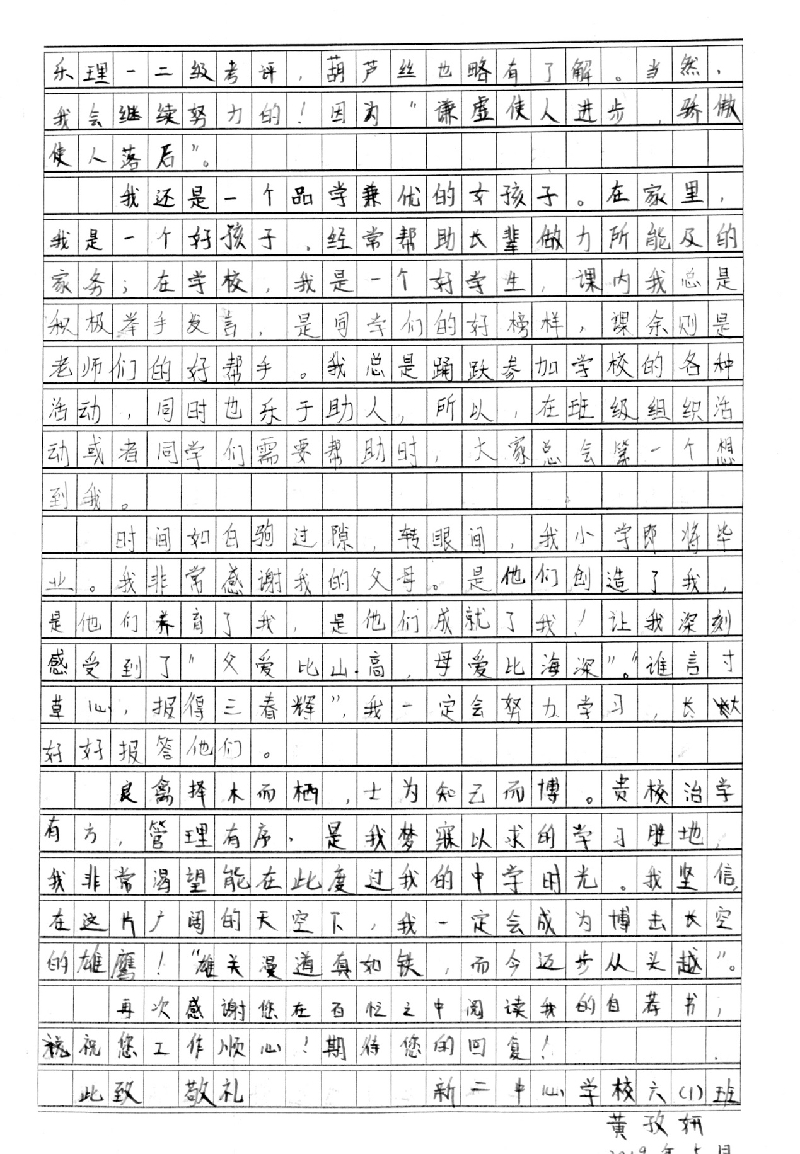 乐理一二级考评，葫芦丝也略有了解。当然，
我会继续努力的！因为“谦虚使人进步，骄傲
使人落后”。
我还是一个品学兼优的女孩子。在家里，
我是一个好孩子。经常帮助长辈做力所能及的
家务；在学校，我是一个好学生，课内我总是
积极举手发言，是同学们的好榜样，课余则是
老师们的好帮手。我总是踊跃参加学校的各种
活动，同时也乐于助人，所以，在班级组织活
动或者同学们需要帮助时，大家总会第一个想
到我。
时间如白驹过隙，转眼间，我小学即将毕
业。我非常感谢我的父母。是他们创造了我，
是他们养育了我，是他们成就了我！让我深刻
感受到了“父爱比山高，母爱比海深”。“谁言寸
草心，报得三春辉”，我一定会努力学习，长大
好好报答他们。
良禽择木而栖，士为知己而博。贵校治学
有方，管理有序，是我梦寐以求的学习胜地，
我非常渴望能在此度过我的中学时光。我坚信，
在这片广阔的天空下，我一定会成为博击长空
的雄鹰！“雄关漫道真如铁，而今迈步从头越”。
再次感谢您在百忙之中阅读我的自荐书，
祝您工作顺心！期待您的回复！
此致 敬礼 新二中心学校六（1）班
黄孜妍
2019年5月